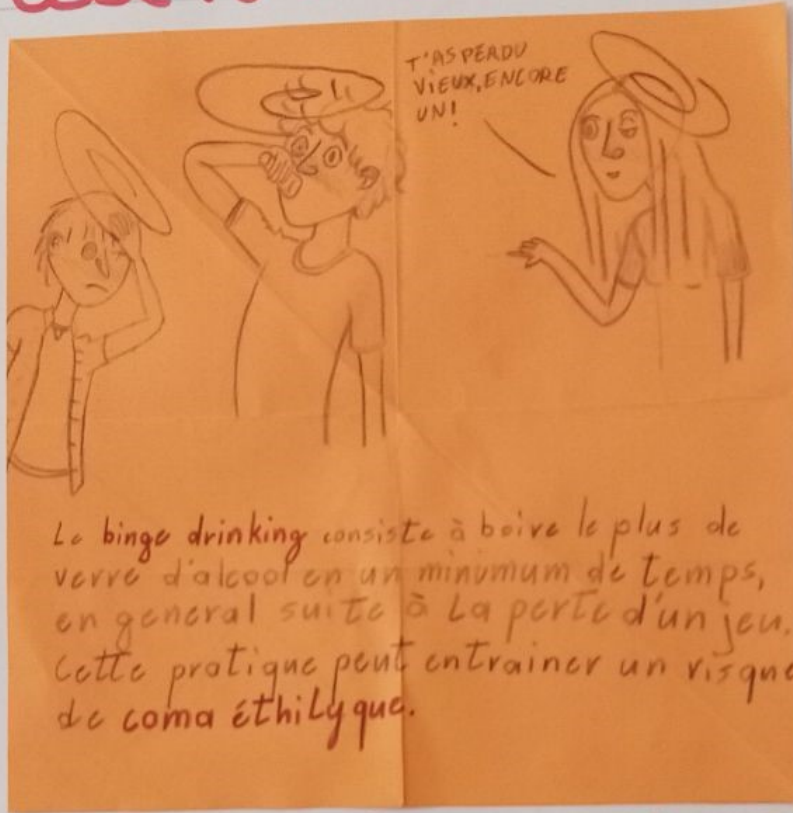 T'AS PERDU
VIEUX, ENCORE
UN!
Le binge drinking consiste à boire le plus de
verre d'alcool en un minimum de temps,
en general suite à La perte d'un jeu.
Cette pratique peut entrainer un risque
de coma éthilyque.